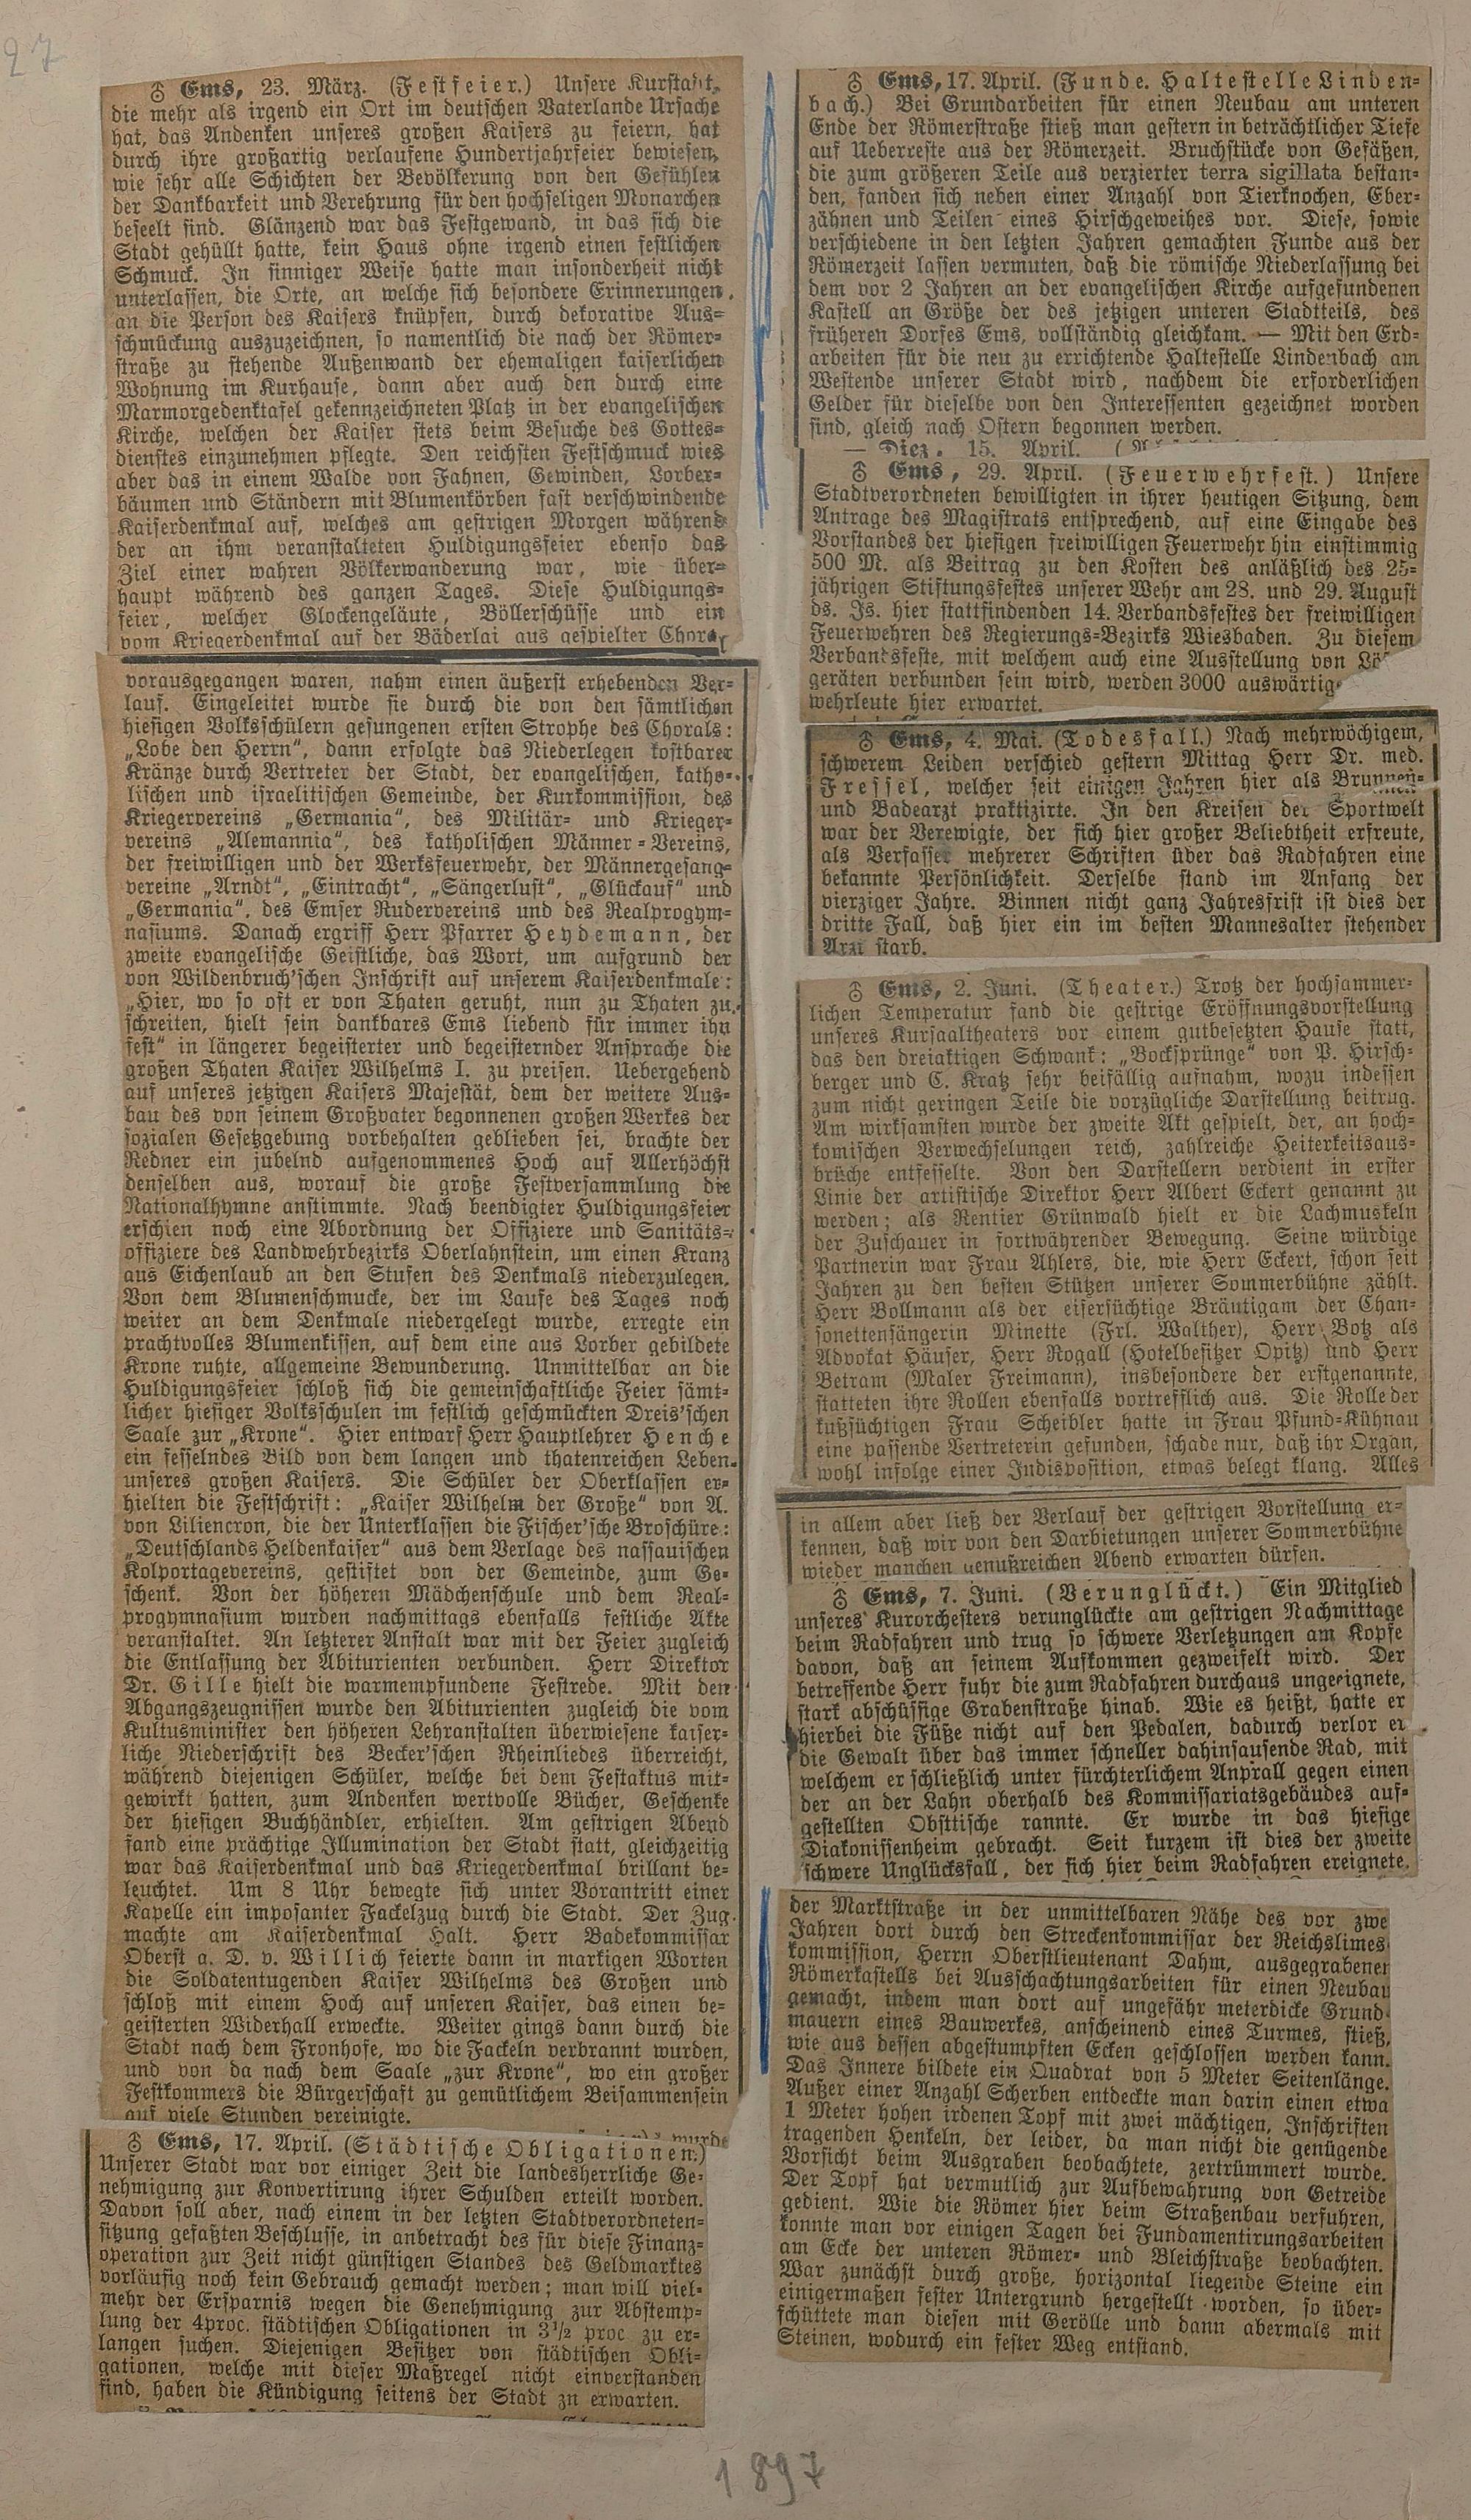 27
♁ Ems, 23. März. (Festfeier.) Unsere Kurstadt,
die mehr als irgend ein Ort im deutschen Vaterlande Ursache
hat, das Andenken unseres großen Kaisers zu feiern, hat
durch ihre großartig verlaufene Hundertjahrfeier bewiesen,
wie sehr alle Schichten der Bevölkerung von den Gefühlen
der Dankbarkeit und Verehrung für den hochseligen Monarchen
beseelt sind. Glänzend war das Festgewand, in das sich die
Stadt gehüllt hatte, kein Haus ohne irgend einen festlichen
Schmuck. In sinniger Weise hatte man insonderheit nicht
unterlassen, die Orte, an welche sich besondere Erinnerungen
an die Person des Kaisers knüpfen, durch dekorative Aus-
schmückung auszuzeichnen, so namentlich die nach der Römer-
straße zu stehende Außenwand der ehemaligen kaiserlichen
Wohnung im Kurhause, dann aber auch den durch eine
Marmorgedenktafel gekennzeichneten Platz in der evangelischen
Kirche, welchen der Kaiser stets beim Besuche des Gottes-
dienstes einzunehmen pflegte. Den reichsten Festschmuck wies
aber das in einem Walde von Fahnen, Gewinden, Lorber-
bäumen und Ständern mit Blumenkörben fast verschwindende
Kaiserdenkmal auf, welches am gestrigen Morgen während
der an ihm veranstalteten Huldigungsfeier ebenso das
Ziel einer wahren Völkerwanderung war, wie über-
haupt während des ganzen Tages. Diese Huldigungs-
feier, welcher Glockengeläute, Böllerschüsse und ein
vom Kriegerdenkmal auf der Bäderlai aus gespielter Choral
vorausgegangen waren, nahm einen äußerst erhebenden Ver-
lauf. Eingeleitet wurde sie durch die von den sämtlichen
hiesigen Volksschülern gesungenen ersten Strophe des Chorals:
„Lobe den Herrn“, dann erfolgte das Niederlegen kostbarer
Kränze durch Vertreter der Stadt, der evangelischen, katho-
lischen und israelitischen Gemeinde, der Kurkommission, des
Kriegervereins „Germania“, des Militär- und Krieger-
vereins „Alemannia“, des katholischen Männer-Vereins,
der freiwilligen und der Werksfeuerwehr, der Männergesang-
vereine „Arndt“, „Eintracht“, „Sängerlust“, „Glückauf“ und
„Germania“, des Emser Rudervereins und des Realprogym-
nasiums. Danach ergriff Herr Pfarrer Heydemann, der
zweite evangelische Geistliche, das Wort, um aufgrund der
von Wildenbruch'schen Inschrift auf unserem Kaiserdenkmale:
„Hier, wo so oft er von Thaten geruht, nun zu Thaten zu
schreiten, hielt sein dankbares Ems liebend für immer ihn
fest“ in längerer begeisterter und begeisternder Ansprache die
großen Thaten Kaiser Wilhelms I. zu preisen. Uebergehend
auf unseres jetzigen Kaisers Majestät, dem der weitere Aus-
bau des von seinem Großvater begonnenen großen Werkes der
sozialen Gesetzgebung vorbehalten geblieben sei, brachte der
Redner ein jubelnd aufgenommenes Hoch auf Allerhöchst
denselben aus, worauf die große Festversammlung die
Nationalhymne anstimmte. Nach beendigter Huldigungsfeier
erschien noch eine Abordnung der Offiziere und Sanitäts-
offiziere des Landwehrbezirks Oberlahnstein, um einen Kranz
aus Eichenlaub an den Stufen des Denkmals niederzulegen.
Von dem Blumenschmucke, der im Laufe des Tages noch
weiter an dem Denkmale niedergelegt wurde, erregte ein
prachtvolles Blumenkissen, auf dem eine aus Lorber gebildete
Krone ruhte, allgemeine Bewunderung. Unmittelbar an die
Huldigungsfeier schloß sich die gemeinschaftliche Feier sämt-
licher hiesiger Volksschulen im festlich geschmückten Dreis'schen
Saale zur „Krone“. Hier entwarf Herr Hauptlehrer Henche
ein fesselndes Bild von dem langen und thatenreichen Leben
unseres großen Kaisers. Die Schüler der Oberklassen er-
hielten die Festschrift: „Kaiser Wilhelm der Große“ von A.
von Liliencron, die der Unterklassen die Fischer'sche Broschüre:
„Deutschlands Heldenkaiser“ aus dem Verlage des nassauischen
Kolportagevereins, gestiftet von der Gemeinde, zum Ge-
schenk. Von der höheren Mädchenschule und dem Real-
progymnasium wurden nachmittags ebenfalls festliche Akte
veranstaltet. An letzterer Anstalt war mit der Feier zugleich
die Entlassung der Abiturienten verbunden. Herr Direktor
Dr. Gille hielt die warmempfundene Festrede. Mit den
Abgangszeugnissen wurde den Abiturienten zugleich die vom
Kultusminister den höheren Lehranstalten überwiesene kaiser-
liche Niederschrift des Becker'schen Rheinliedes überreicht,
während diejenigen Schüler, welche bei dem Festaktus mit-
gewirkt hatten, zum Andenken wertvolle Bücher, Geschenke
der hiesigen Buchhändler, erhielten. Am gestrigen Abend
fand eine prächtige Illumination der Stadt statt, gleichzeitig
war das Kaiserdenkmal und das Kriegerdenkmal brillant be-
leuchtet. Um 8 Uhr bewegte sich unter Vorantritt einer
Kapelle ein imposanter Fackelzug durch die Stadt. Der Zug
machte am Kaiserdenkmal Halt. Herr Badekommissar
Oberst a. D. v. Willich feierte dann in markigen Worten
die Soldatentugenden Kaiser Wilhelms des Großen und
schloß mit einem Hoch auf unseren Kaiser, das einen be-
geisterten Widerhall erweckte. Weiter gings dann durch die
Stadt nach dem Fronhofe, wo die Fackeln verbrannt wurden,
und von da nach dem Saale „zur Krone“, wo ein großer
Festkommers die Bürgerschaft zu gemütlichem Beisammensein
auf viele Stunden vereinigte.
wurde
♁ Ems, 17. April. (Städtische Obligationen.)
Unserer Stadt war vor einiger Zeit die landesherrliche Ge-
nehmigung zur Konvertirung ihrer Schulden erteilt worden.
Davon soll aber, nach einem in der letzten Stadtverordneten-
sitzung gefaßten Beschlusse, in anbetracht des für diese Finanz-
operation zur Zeit nicht günstigen Standes des Geldmarktes
vorläufig noch kein Gebrauch gemacht werden; man will viel-
mehr der Ersparnis wegen die Genehmigung zur Abstemp-
lung der 4proc. städtischen Obligationen in 3½ proc zu er-
langen suchen. Diejenigen Besitzer von städtischen Obli-
gationen, welche mit dieser Maßregel nicht einverstanden
sind, haben die Kündigung seitens der Stadt zu erwarten.
♁ Ems, 17. April. (Funde. Haltestelle Linden-
bach.) Bei Grundarbeiten für einen Neubau am unteren
Ende der Römerstraße stieß man gestern in beträchtlicher Tiefe
auf Ueberreste aus der Römerzeit. Bruchstücke von Gefäßen,
die zum größeren Teile aus verzierter terra sigillata bestan-
den, fanden sich neben einer Anzahl von Tierknochen, Eber-
zähnen und Teilen eines Hirschgeweihes vor. Diese, sowie
verschiedene in den letzten Jahren gemachten Funde aus der
Römerzeit lassen vermuten, daß die römische Niederlassung bei
dem vor 2 Jahren an der evangelischen Kirche aufgefundenen
Kastell an Größe der des jetzigen unteren Stadtteils, des
früheren Dorfes Ems, vollständig gleichkam. — Mit den Erd-
arbeiten für die neu zu errichtende Haltestelle Lindenbach am
Westende unserer Stadt wird, nachdem die erforderlichen
Gelder für dieselbe von den Interessenten gezeichnet worden
sind, gleich nach Ostern begonnen werden.
— Diez, 15. April.
♁ Ems, 29. April. (Feuerwehrfest.) Unsere
Stadtverordneten bewilligten in ihrer heutigen Sitzung, dem
Antrage des Magistrats entsprechend, auf eine Eingabe des
Vorstandes der hiesigen freiwilligen Feuerwehr hin einstimmig
500 M. als Beitrag zu den Kosten des anläßlich des 25-
jährigen Stiftungsfestes unserer Wehr am 28. und 29. August
ds. Js. hier stattfindenden 14. Verbandsfestes der freiwilligen
Feuerwehren des Regierungs-Bezirks Wiesbaden. Zu diesem
Verbandsfeste, mit welchem auch eine Ausstellung von Lös
geräten verbunden sein wird, werden 3000 auswärtig
wehrleute hier erwartet.
♁ Ems, 4. Mai. (Todesfall.) Nach mehrwöchigem,
schwerem Leiden verschied gestern Mittag Herr Dr. med.
Fressel, welcher seit einigen Jahren hier als Brunnen-
und Badearzt praktizirte. In den Kreisen der Sportwelt
war der Verewigte, der sich hier großer Beliebtheit erfreute,
als Verfasser mehrerer Schriften über das Radfahren eine
bekannte Persönlichkeit. Derselbe stand im Anfang der
vierziger Jahre. Binnen nicht ganz Jahresfrist ist dies der
dritte Fall, daß hier ein im besten Mannesalter stehender
Arzt starb.
♁ Ems, 2. Juni. (Theater.) Trotz der hochsammer-
lichen Temperatur fand die gestrige Eröffnungsvorstellung
unseres Kursaaltheaters vor einem gutbesetzten Hause statt,
das den dreiaktigen Schwank: „Bocksprünge“ von P. Hirsch-
berger und C. Kratz sehr beifällig aufnahm, wozu indessen
zum nicht geringen Teile die vorzügliche Darstellung beitrug.
Am wirksamsten wurde der zweite Akt gespielt, der, an hoch-
komischen Verwechselungen reich, zahlreiche Heiterkeitsaus-
brüche entfesselte. Von den Darstellern verdient in erster
Linie der artistische Direktor Herr Albert Eckert genannt zu
werden; als Rentier Grünwald hielt er die Lachmuskeln
der Zuschauer in fortwährender Bewegung. Seine würdige
Partnerin war Frau Ahlers, die, wie Herr Eckert, schon seit
Jahren zu den besten Stützen unserer Sommerbühne zählt.
Herr Bollmann als der eifersüchtige Bräutigam der Chan-
sonettensängerin Minette (Frl. Walther), Herr Botz als
Advokat Häuser, Herr Rogall (Hotelbesitzer Opitz) und Herr
Betram (Maler Freimann), insbesondere der erstgenannte,
statteten ihre Rollen ebenfalls vortrefflich aus. Die Rolle der
kußsüchtigen Frau Scheibler hatte in Frau Pfund-Kühnau
eine passende Vertreterin gefunden, schade nur, daß ihr Organ,
wohl infolge einer Indisposition, etwas belegt klang. Alles
in allem aber ließ der Verlauf der gestrigen Vorstellung er-
kennen, daß wir von den Darbietungen unserer Sommerbühne
wieder manchen genußreichen Abend erwarten dürfen.
♁ Ems, 7. Juni. (Verunglückt.) Ein Mitglied
unseres Kurorchesters verunglückte am gestrigen Nachmittage
beim Radfahren und trug so schwere Verletzungen am Kopfe
davon, daß an seinem Aufkommen gezweifelt wird. Der
betreffende Herr fuhr die zum Radfahren durchaus ungeeignete,
stark abschüssige Grabenstraße hinab. Wie es heißt, hatte er
hierbei die Füße nicht auf den Pedalen, dadurch verlor er
die Gewalt über das immer schneller dahinsausende Rad, mit
welchem er schließlich unter fürchterlichem Anprall gegen einen
der an der Lahn oberhalb des Kommissariatsgebäudes auf-
gestellten Obsttische rannte. Er wurde in das hiesige
Diakonissenheim gebracht. Seit kurzem ist dies der zweite
schwere Unglücksfall, der sich hier beim Radfahren ereignete.
der Marktstraße in der unmittelbaren Nähe des vor zwe
Jahren dort durch den Streckenkommissar der Reichslimes
kommission, Herrn Oberstlieutenant Dahm, ausgegrabenen
Römerkastells bei Ausschachtungsarbeiten für einen Neubau
gemacht, indem man dort auf ungefähr meterdicke Grund-
mauern eines Bauwerkes, anscheinend eines Turmes, stieß,
wie aus dessen abgestumpften Ecken geschlossen werden kann.
Das Innere bildete ein Quadrat von 5 Meter Seitenlänge.
Außer einer Anzahl Scherben entdeckte man darin einen etwa
1 Meter hohen irdenen Topf mit zwei mächtigen, Inschriften
tragenden Henkeln, der leider, da man nicht die genügende
Vorsicht beim Ausgraben beobachtete, zertrümmert wurde.
Der Topf hat vermutlich zur Aufbewahrung von Getreide
gedient. Wie die Römer hier beim Straßenbau verfuhren,
konnte man vor einigen Tagen bei Fundamentirungsarbeiten
am Ecke der unteren Römer- und Bleichstraße beobachten.
War zunächst durch große, horizontal liegende Steine ein
einigermaßen fester Untergrund hergestellt worden, so über-
schüttete man diesen mit Gerölle und dann abermals mit
Steinen, wodurch ein fester Weg entstand.
1897